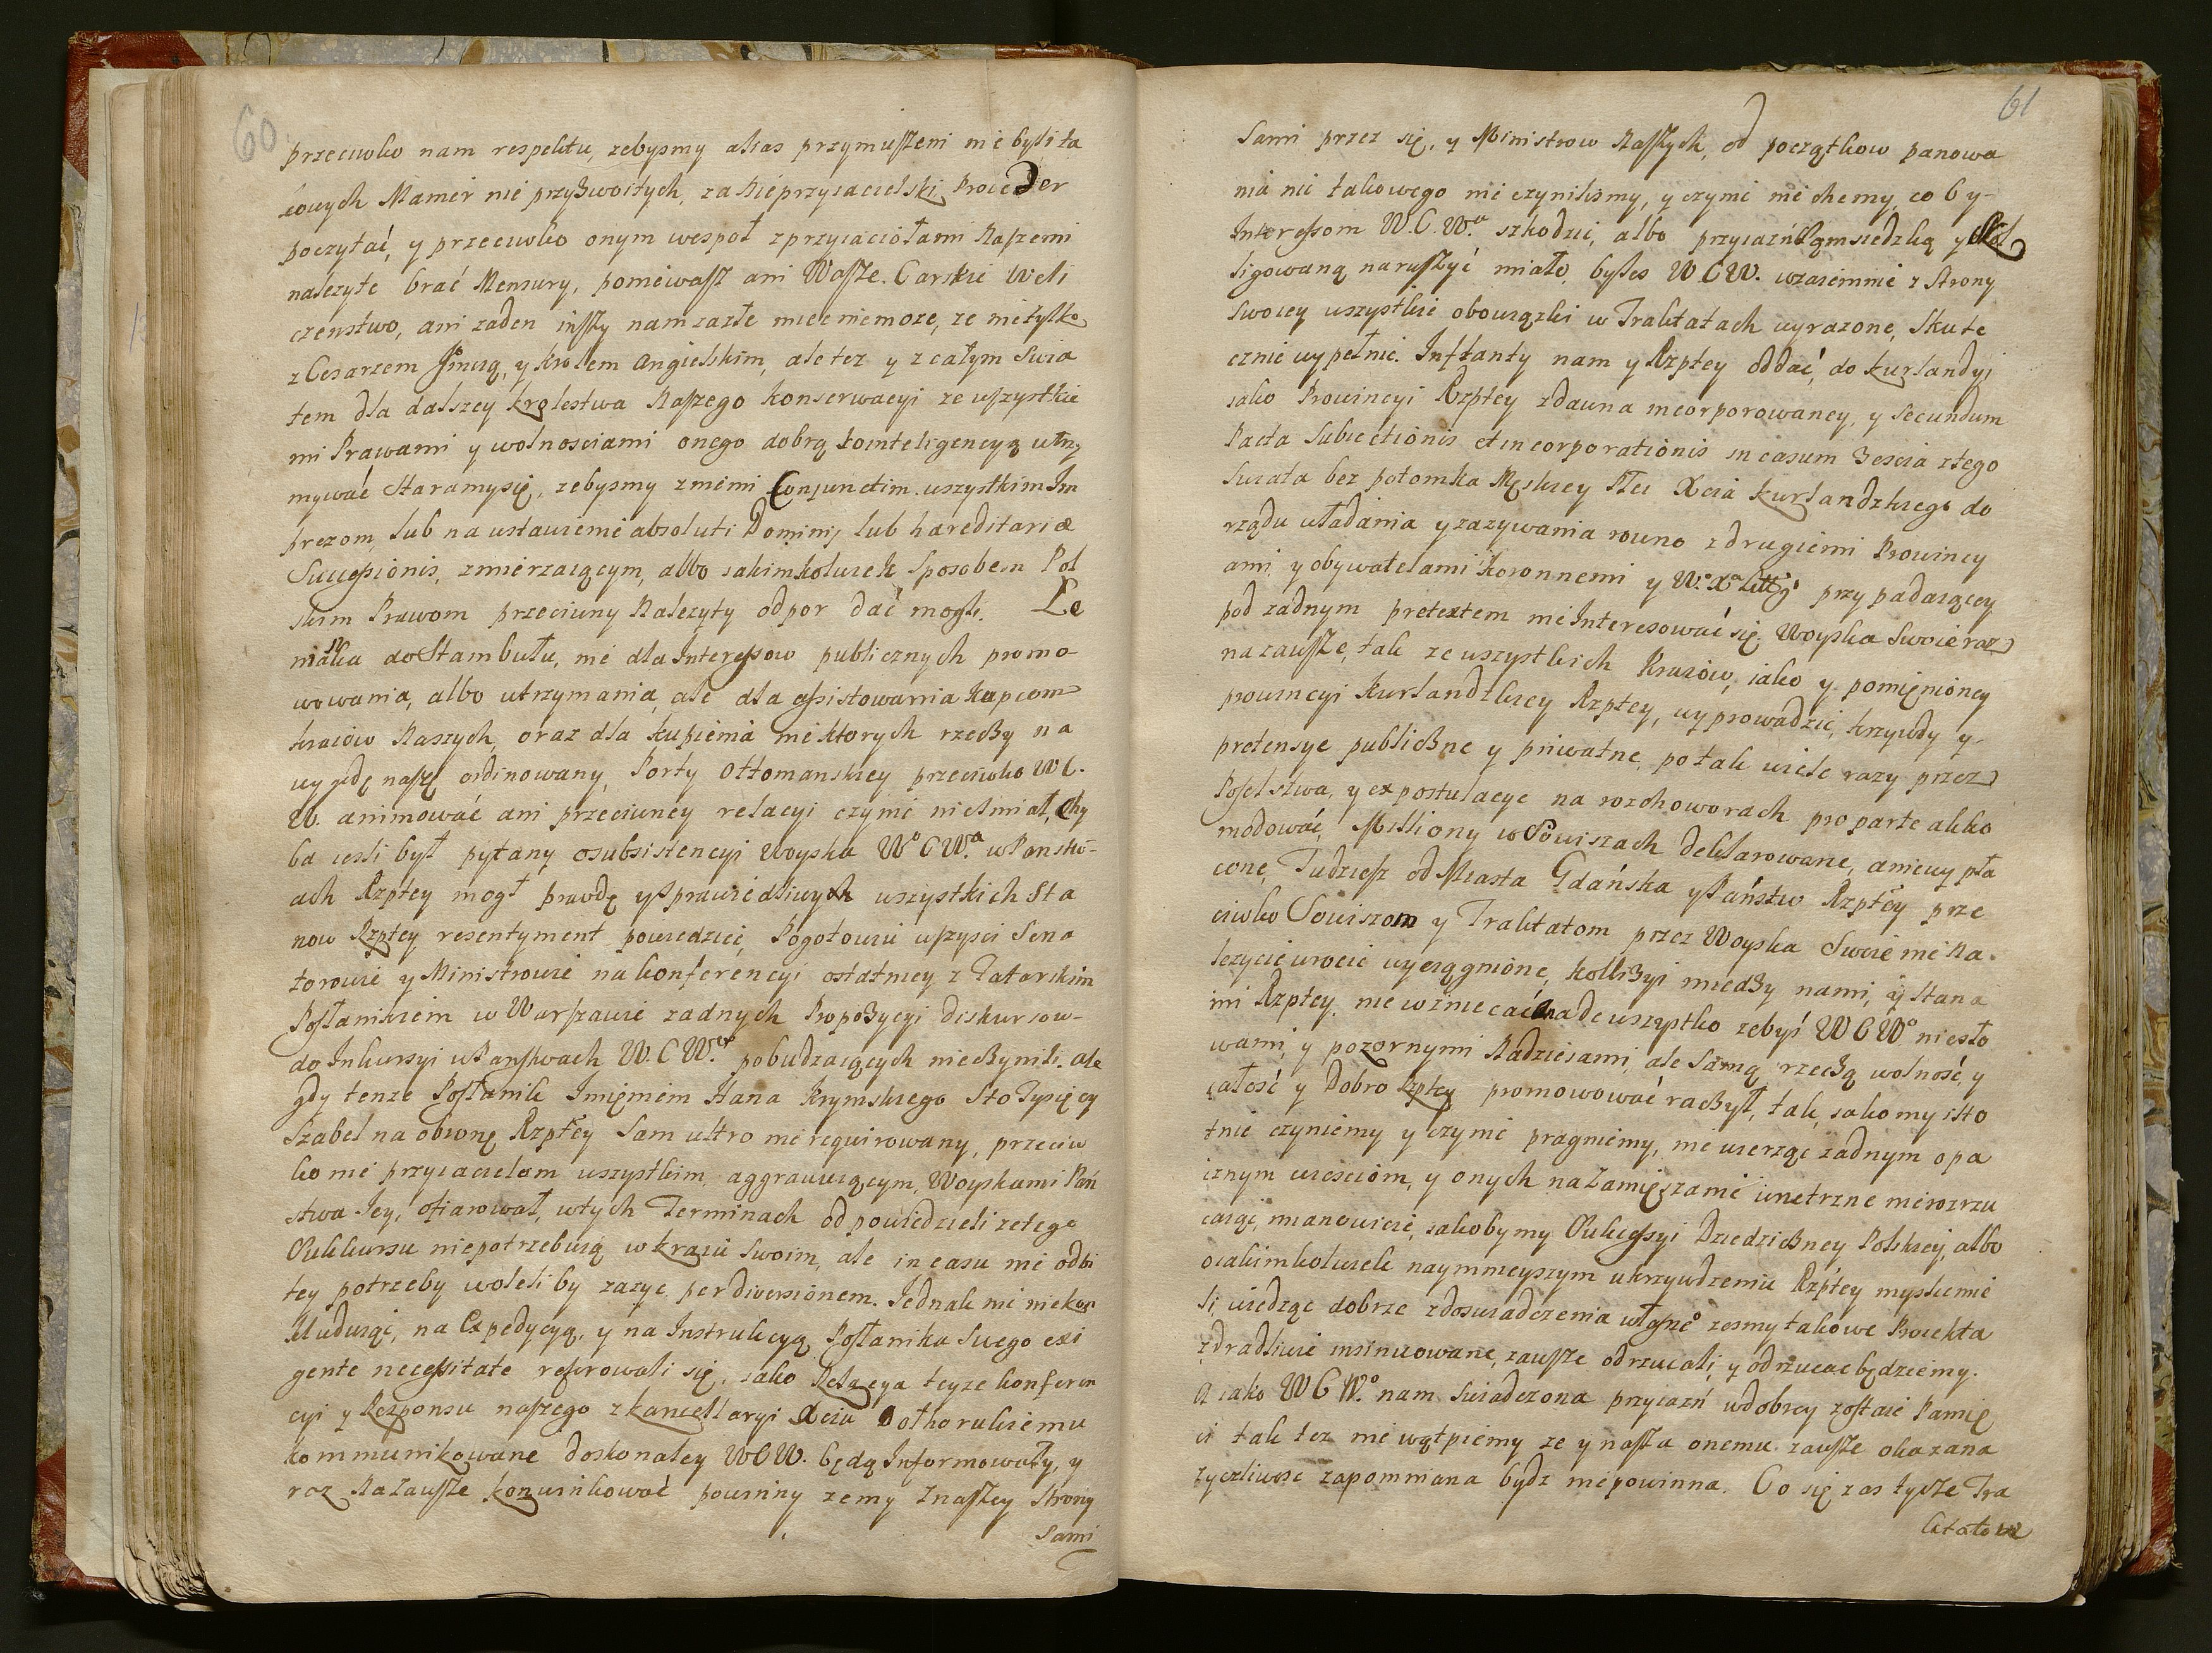 60
przeciwko nam respektu, zebysmy alias przymuszeni nie byli ta
kowych Manier nie przyzwoitych, za Nieprzyiacielski Proceder
poczytać, y przeciwko onym wespoł z przyiaciołami Naszemi
nalezyte brać Mensury, poniewasz ani Wasze Carskie Weli
czenstwo, ani zaden inszy nam zazłe miec niemoze, ze nietylko
z Cesarzem Jmcią, y krolem Angielskim, ale tez y z całym Swia
tem dla dalszey krolestwa Naszego konserwacyi ze wszystkie
mi Prawami y wolnosciami onego dobrą kointeligencyą utrzy
mywać Staramysię, zebysmy z niemi Conjunctim wszystkim Im
prezom, lub na ustawienie absoluti Dominij lub hæreditariæ
Successionis, zmierzaiącym, albo iakimkolwiek Sposobem Pol
skim Prawom przeciwny Nalezyty odpor dać mogli. Le
niaka do Stambułu, nie dla Interessow publicznych promo-
wowania, albo utrzymania, ale dla assistowania kupcom
kraiow Naszych, oraz dla kupienia niektorych rzeczy na
wygodę naszę ordinowany, Porty Ottomanskiey przeciwko WC.
W. animować ani przeciwney relacyi czynić niesmiał, Chy
ba iesli był pytany o subsistencyi Woyska Wº C Wª. w Panstw-
ach Rzptey mogł prawdę y Sprawiedliwych wszystkich Sta
now Rzptey resentyment powiedzieć, Pogotowiu wszysci Sena
torowie y Ministrowie na konferencyi ostatniey z Tatarskim
Posłannikiem w Warszawie zadnych Propozycyi diskursow-
do Inkursyi w Panstwach W. C Wª. pobudzaiących nieczynili. ale
gdy tenze Posłannik Imięniem Hana Krymskiego Sto Tysięcy
Szabel na obronę Rzptey Sam ultro nie requirowany, przeciw
ko nie przyiacielom wszystkim aggrawuiącym, Woyskami Pań
stwa Iey, ofiarował, w tych Terminach odpowiedzieli ze tego
Sukkursu niepotrzebuią w kraiu Swoim, ale in casu nie odbi
tey potrzeby woleli by zazyć per diversionem. Jednak nie niekon
kluduiąc, na Expedycyą, y na Instrukcyą Posłannika Swego exi
gente necessitate referowali się, iako Relacya teyze konferen
cyi y Responsu naszego z kancellaryi Xciu Dołhorukiemu
kommunikowane doskonaley WCW. będą Informowały, y
raz Nazawsze konwinkować powinny ze my z Naszey Strony
Sami
61
Sami przez się, y Ministrow Naszych, od początkow panowa
nia nic takowego nie czynilismy, y czynic nie chcemy, co by-
Interessom W.C.Wª. szkodzić, albo przyiaźń Sąmsiedzką y Skol
ligowaną naruszyć miało, byles WCW. wzaiemnie z Strony
Swoiey wszystkie obowiązki w Traktatach wyrazone, Skute
cznie wypełnić. Inflanty nam y Rzptey oddać, do kurlandyi
iako Prowincyi Rzptey zdawna incorporowaney, y Secundum
Pacta Subiectionis et incorporationis in casum zescia z tego
Swiata bez potomka Męskiey Płci Xcia kurlandzkiego do
rządu władania y zazywania rowno z drugiemi Prowincy
ami, y obywatelami koronnemi y Wº. Xª Littgº przypadaiącey
pod zadnym pretextem nie Interesować się. Woyska Swoie raz
nazawsze, tak ze wszystkich Kraiow, iako y pomięnioney
prowincyi kurlandtkiey Rzptey, wyprowadzić, krzywdy y
pretensye publiczne y priwatne, po tak wiele razy przez
Poselstwa, y expostulacye na rozchoworach pro parte akko
modować, Milliony w Sowiszach deklarowane, a niewypła
cone, Tudziesz od Miasta Gdańska y Państw Rzptey prze
ciwko Sowiszom y Traktatom przez Woyska Swoie nie Na-
lezycie wrocic wyciągnione, kollizyi miedzy nami, y Stana
mi Rzptey nie wzniecać, Nade wszystko zebyś WCWº niesło
wami, y pozornymi Nadzieiami, ale Samą rzeczą wolność, y
całość y Dobro Rzptey promowować raczył, tak, iako my isto
tnie czyniemy y czynić pragniemy, nie wierząc zadnym opa
cznym wieściom, y onych na Zamięszanie wnetrzne nierozrzu
caiąc, mianowicie, iakobymy Sukcessyi Dziedziczney Polskiey, albo
o iakimkolwiek naymnieyszym ukrzywdzeniu Rzptey myslenie
li, wiedząc dobrze z doswiadczenia własnº zesmy takowe Proiekta
zdradliwie insinuowane, zawsze odrzucali, y odrzucać będziemy.
A iako WC Wº. nam Swiadczona przyiazń w dobrey zostaie Pamię
ci tak tez nie wątpiemy ze y nasza onemu zawsze okazana
zyczliwosc zapomniana bydz niepowinna. Co się zas tycze Tra
ktatow